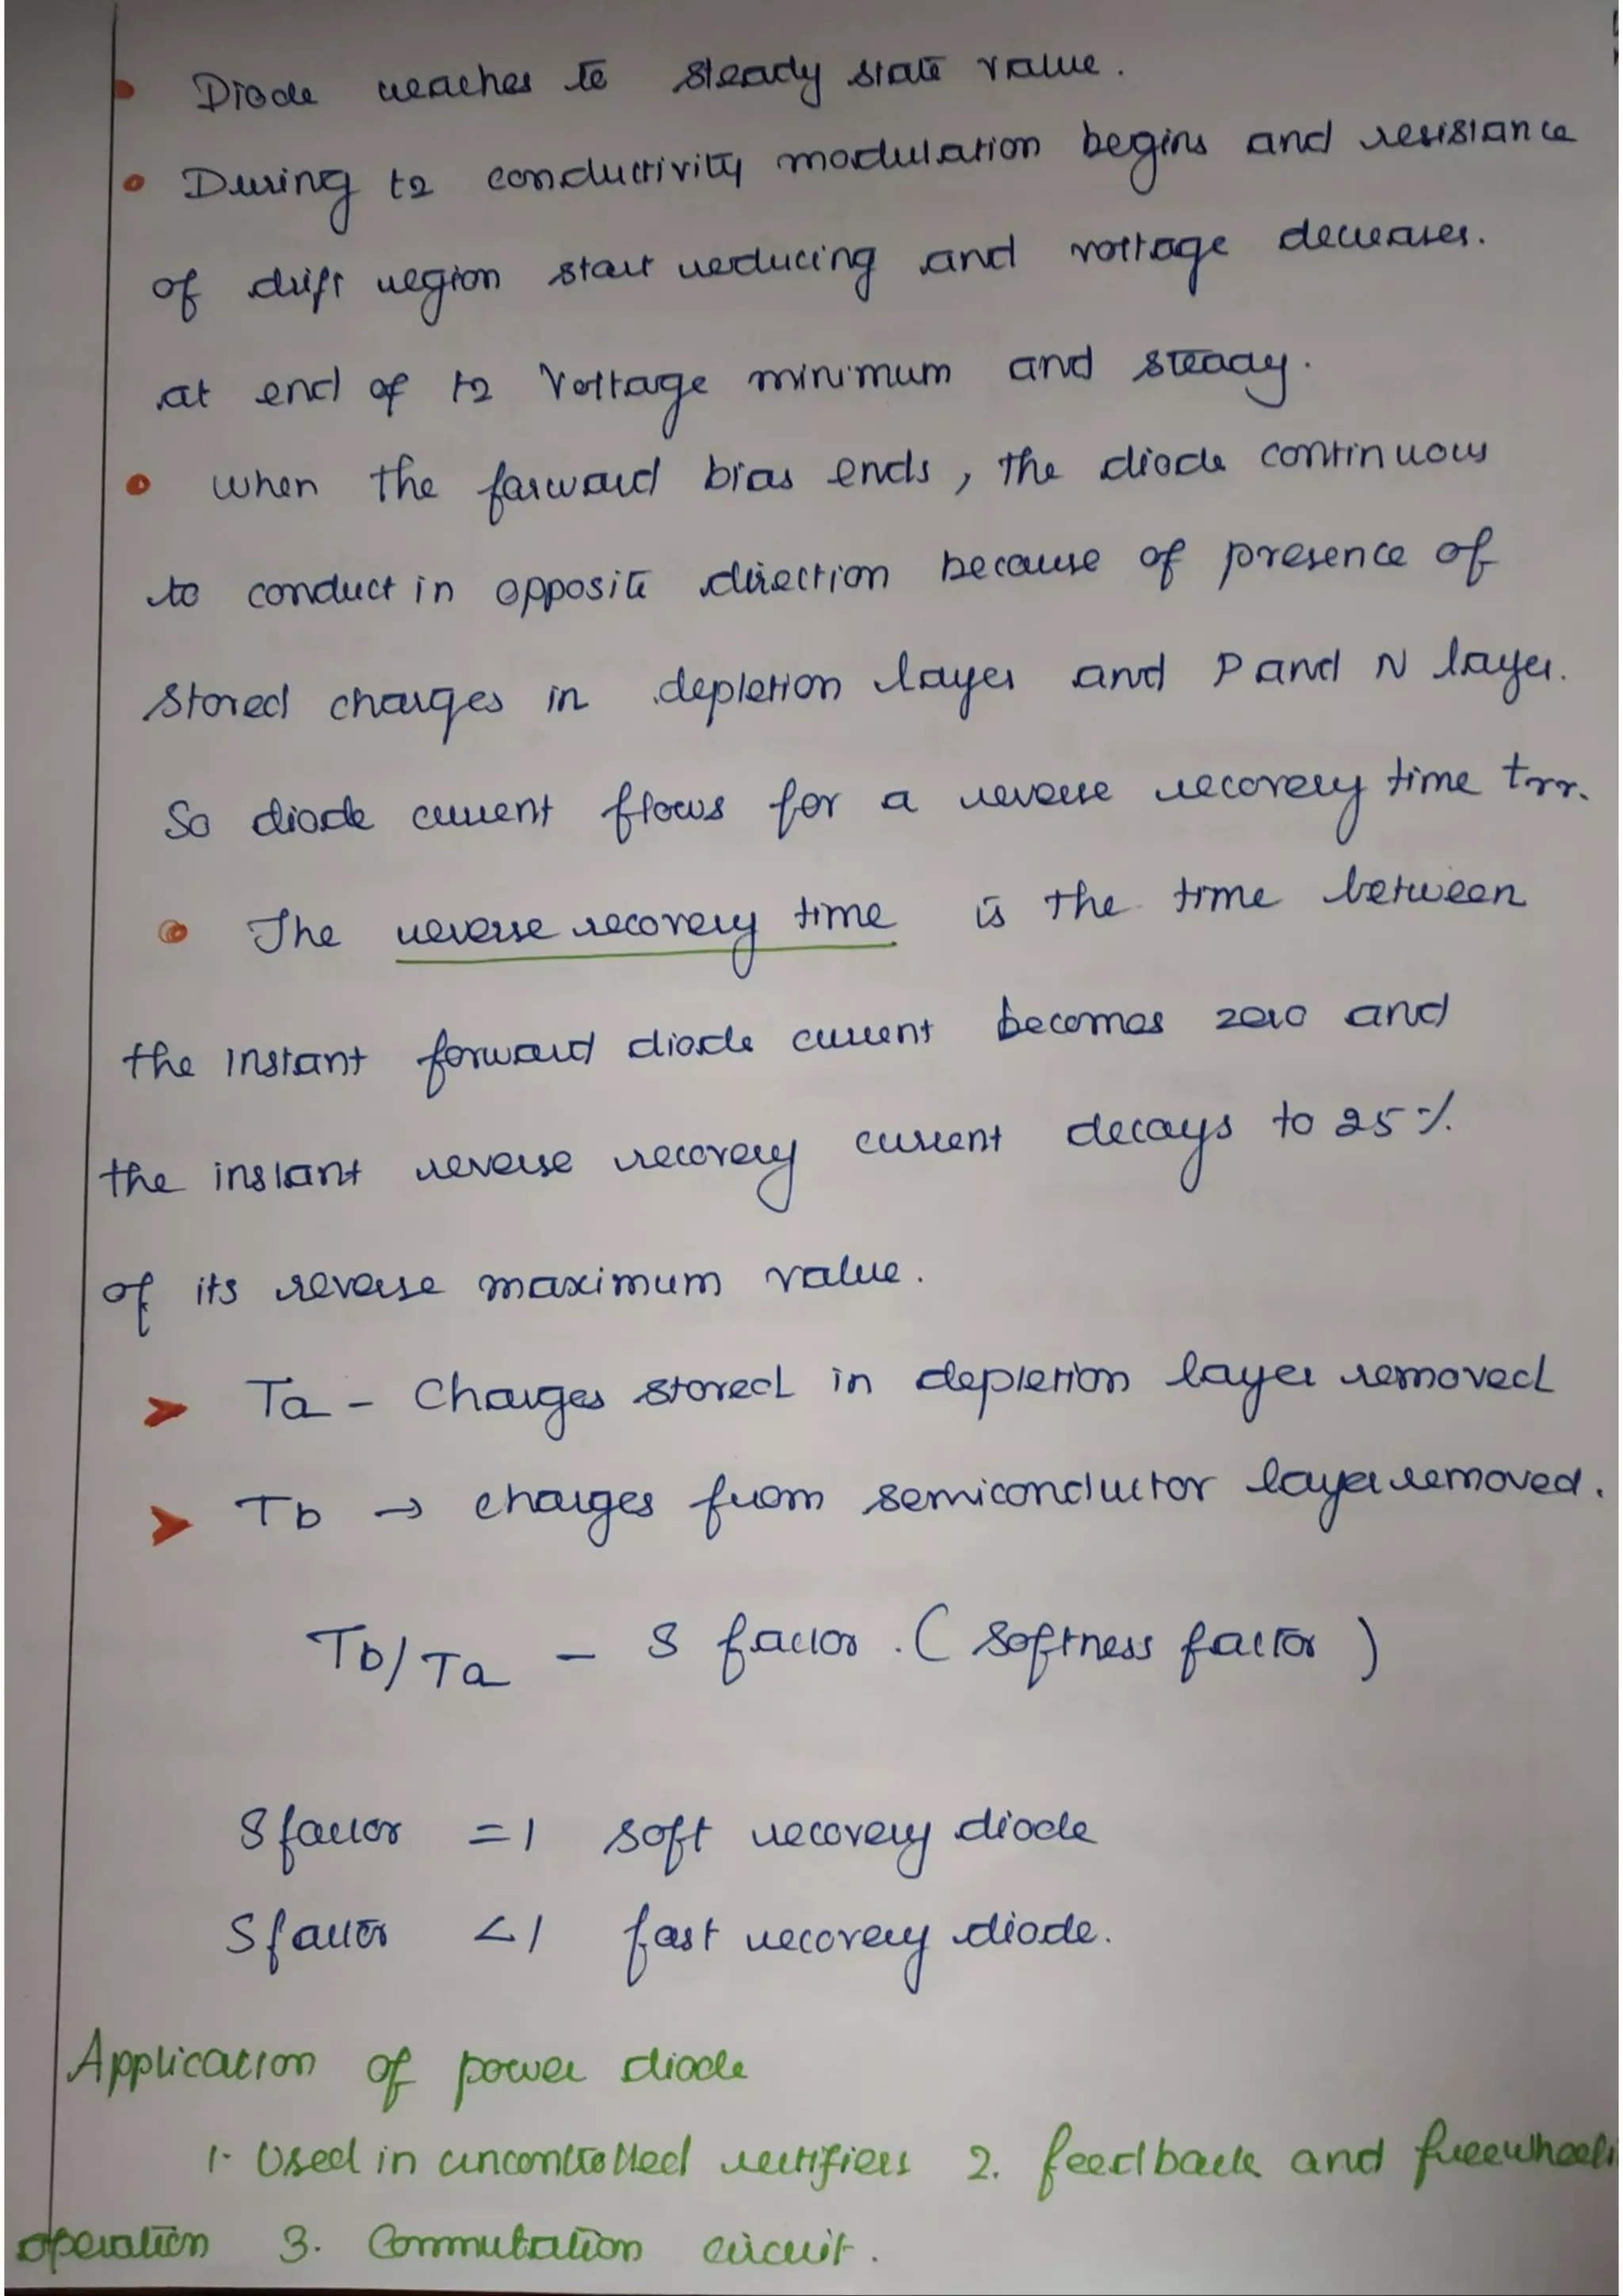 • Diode reaches to steady state value.
• During t2 conductivity modulation begins and resistance
of drift region start reducing and voltage decreases.
at end of t2 Voltage minimum and steady.
• when the forward bias ends, the diode continuous
to conduct in opposite direction because of presence of
stored charges in depletion layer and P and N layer.
So diode current flows for a reverse recovery time trr.
• The reverse recovery time is the time between
the instant forward diode current becomes zero and
the instant reverse recovery current decays to 25%
of its reverse maximum value.
➤ Ta - Charges stored in depletion layer removed
➤ Tb → charges from semiconductor layer removed.
Tb/Ta - S factor. (Softness factor)
S factor = 1 soft recovery diode
S factor < 1 fast recovery diode.
Application of power diode
1. Used in uncontrolled rectifiers 2. feedback and freewheeli
operation 3. Commutation circuit.